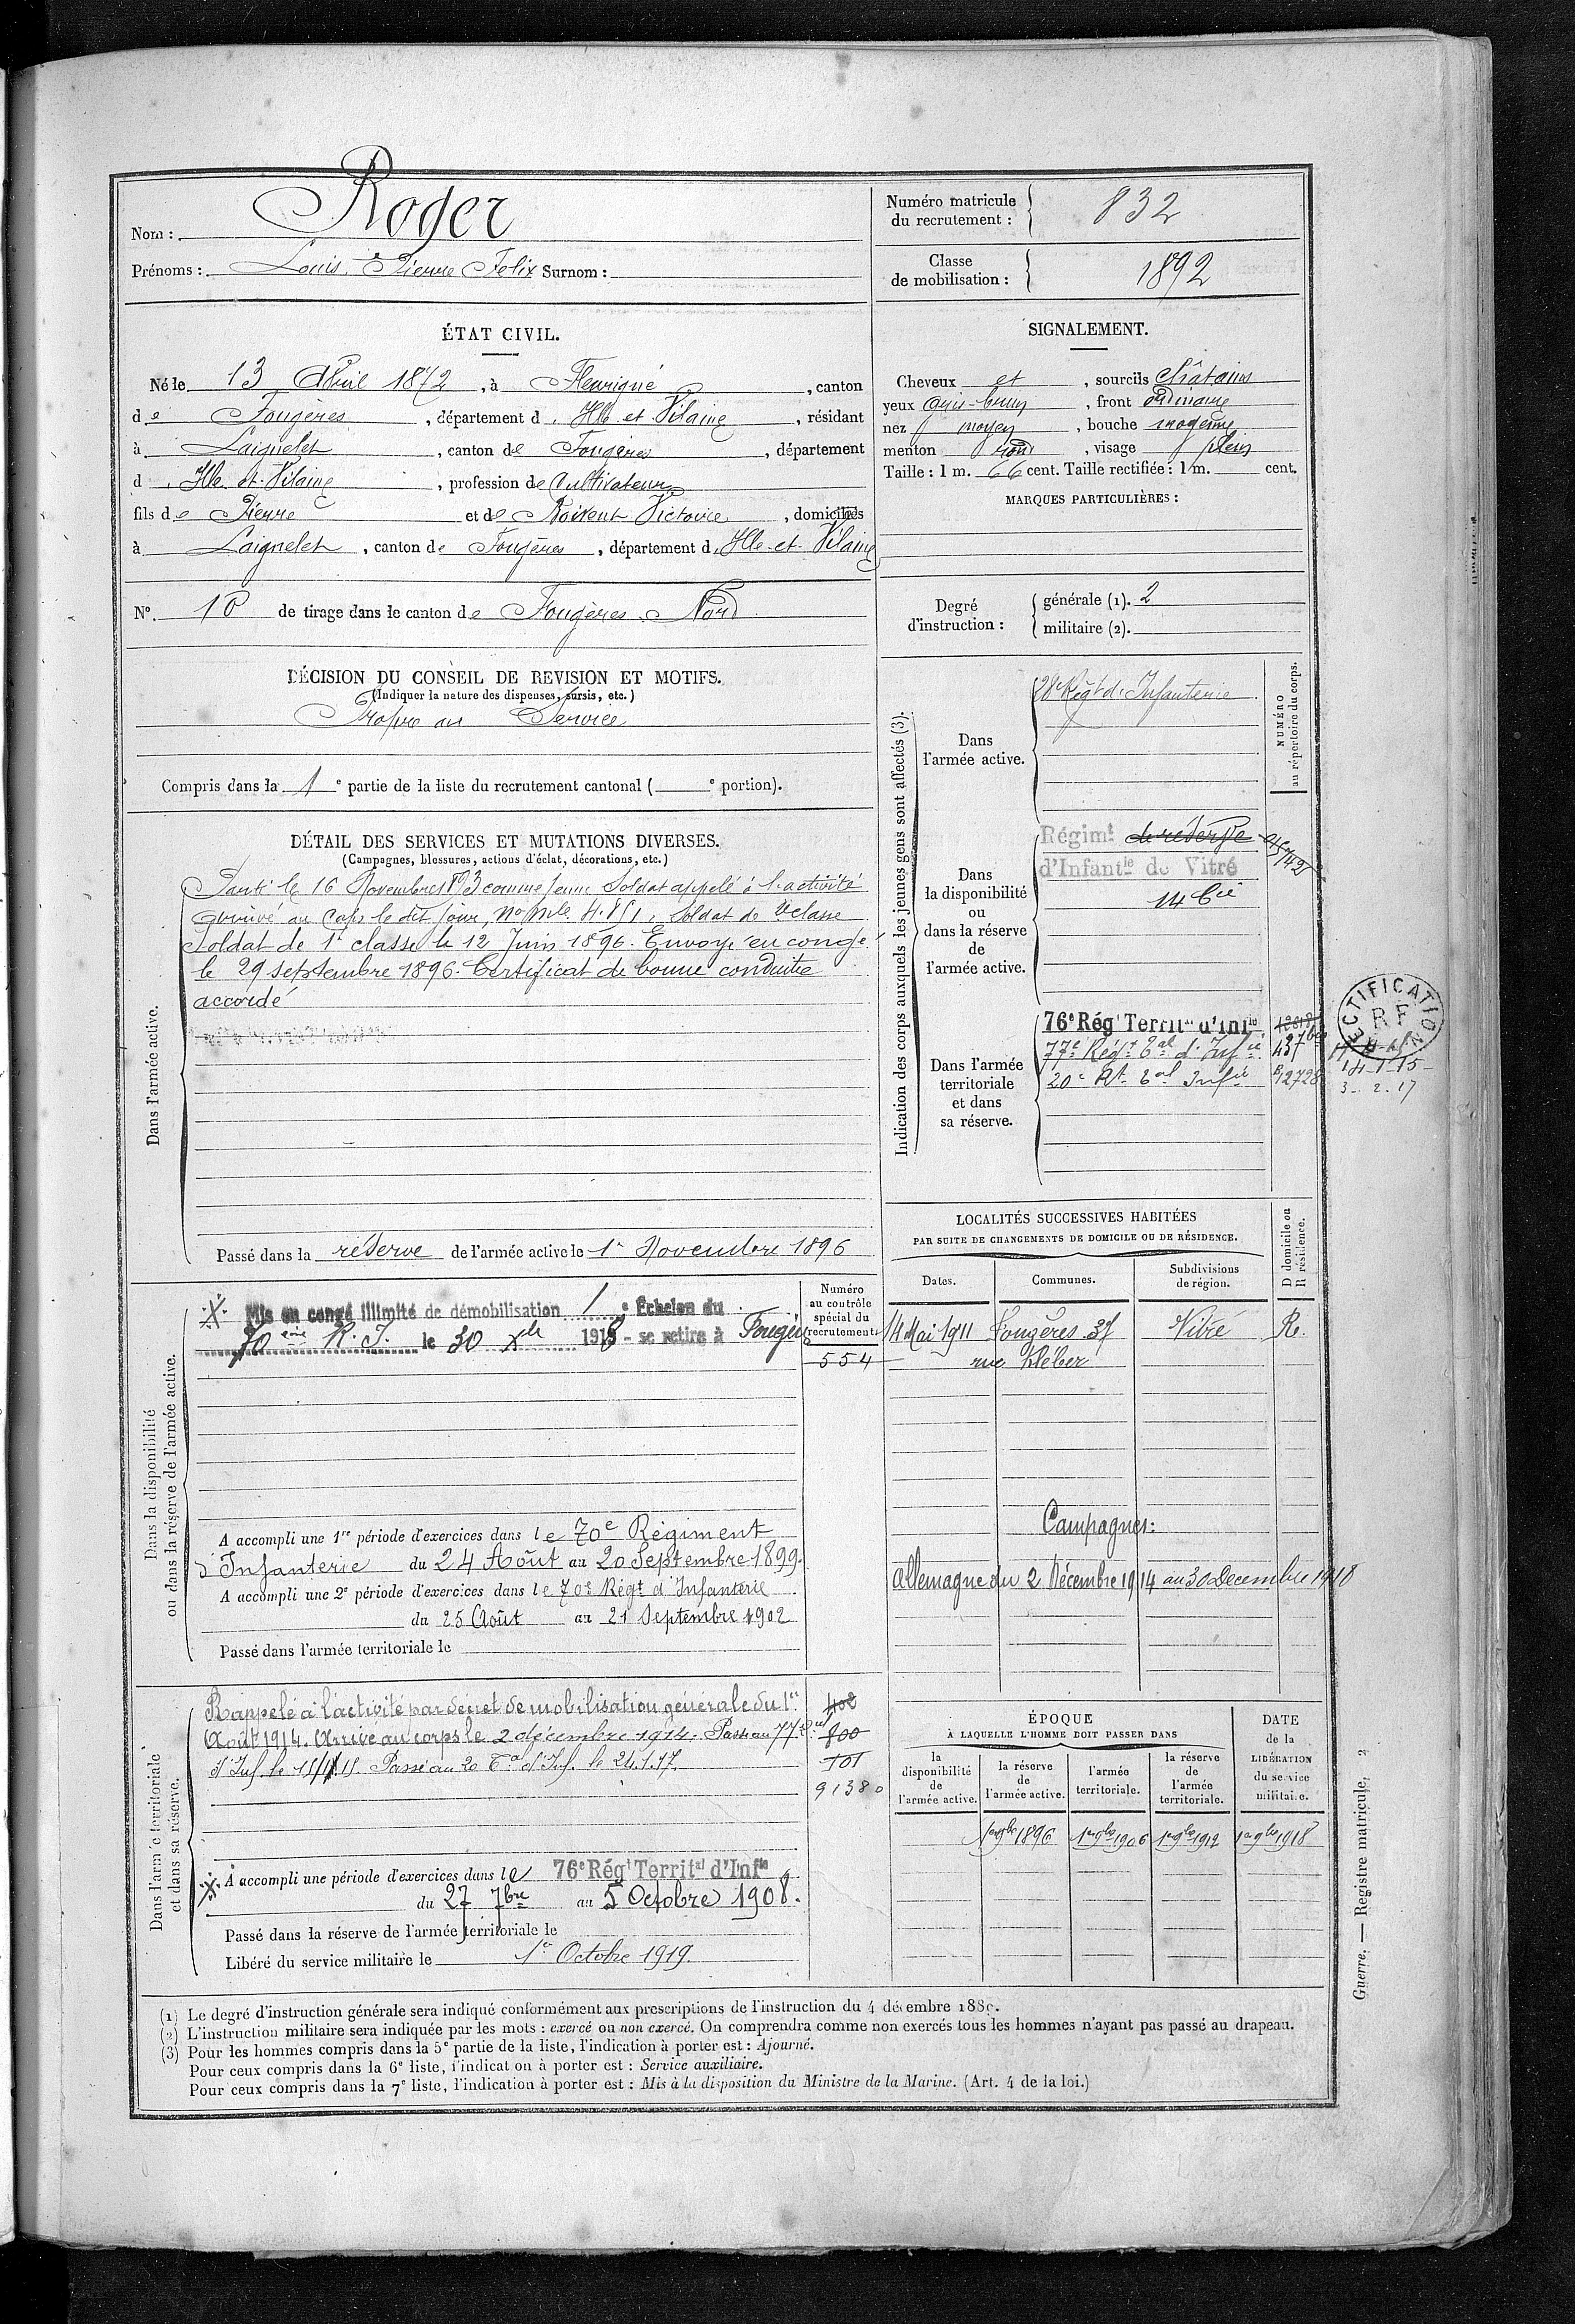 Nom : Roger
Prénoms : Louis Pierre Felix Surnom :
Numéro matricule du recrutement : 832
Classe de mobilisation : 1892
ÉTAT CIVIL.
Né le 13 Avril 1872, à Fleurigné, canton
de Fougères, département d'Ille et Vilaine, résidant
à Laignelet, canton de Fougères, département
d'Ille et Vilaine, profession de Cultivateur
fils de Pierre et de Victoire, domiciliés
à Laignelet, canton de Fougères, département d'Ille et Vilaine
N° 10 de tirage dans le canton de Fougères Nord
SIGNALEMENT.
Cheveux et, sourcils châtains
yeux gris-bruns, front ordinaire
nez moyen, bouche moyenne
menton rond, visage plein
Taille : 1 m. 66 cent. Taille rectifiée : 1 m. cent.
MARQUES PARTICULIÈRES :
Degré d'instruction :
générale (1). 2
militaire (2).
DÉCISION DU CONSEIL DE REVISION ET MOTIFS.
(Indiquer la nature des dispenses, sursis, etc.)
Propre au Service
Compris dans la 1e partie de la liste du recrutement cantonal ( e portion).
DÉTAIL DES SERVICES ET MUTATIONS DIVERSES.
(Campagnes, blessures, actions d'éclat, décorations, etc.)
Dans l'armée active.
Parti le 16 Novembre 1893 comme jeune Soldat appelé à l'activité
arrivé au Corps le dit jour, No mle, Soldat de 2e classe
Soldat de 1e classe le 12 Juin 1896. Envoyé en congé
le 29 septembre 1896. Certificat de bonne conduite
accordé
Passé dans la réserve de l'armée active le 1er Novembre 1896
Indication des corps auxquels les jeunes gens sont affectés (3).
NUMÉRO au répertoire du corps.
Dans l'armée active.
28e Régt d'Infanterie
Dans la disponibilité ou dans la réserve de l'armée active.
Régimt de réserve
d'Infantie de Vitré
14 Cie
Dans l'armée territoriale et dans sa réserve.
76e Rég Territal d'Infie
77e Régt tal d'Infie
20e Rt tal Infie 12728
RECTIFICATION RF
14-1-15
3-2-17
LOCALITÉS SUCCESSIVES HABITÉES
PAR SUITE DE CHANGEMENTS DE DOMICILE OU DE RÉSIDENCE.
Dates.
Communes.
Subdivisions de région.
D domicile ou R résidence.
14 Mai 1911 Fougères 37 Vitré Re.
rue Kléber
Campagnes :
Allemagne du 2 Décembre 1914 au 30 Decembre 1918
Dans la disponibilité ou dans la réserve de l'armée active.
Numéro au contrôle spécial du recrutement
554
Mis en congé illimité de démobilisation 1e Echelon du
70ème R.I. le 30 Xbe 1918 - se retire à Fougères
A accompli une 1re période d'exercices dans le 70e Régiment
d'Infanterie du 24 Août au 20 Septembre 1899.
A accompli une 2e période d'exercices dans le 70e Régt d'Infanterie
du 25 Août au 21 Septembre 1902
Passé dans l'armée territoriale le
Dans l'armée territoriale et dans sa réserve.
Rappelé à l'activité par décret de mobilisation générale du 1er
Août 1914. Arrivé au corps le 2 décembre 1914. Passé au 77e tal
d'Inf. le. Passé au 20 tal d'Inf. le 24.1.17.
402
800
101
91380
A accompli une période d'exercices dans le 76e Rég Territal d'Infie
du 27 7bre au 5 Octobre 1908.
Passé dans la réserve de l'armée territoriale le
Libéré du service militaire le 1er Octobre 1919.
ÉPOQUE
À LAQUELLE L'HOMME DOIT PASSER DANS
la disponibilité de l'armée active.
la réserve de l'armée active.
l'armée territoriale.
la réserve de l'armée territoriale.
DATE de la LIBÉRATION du service militaire.
1er 9bre 1896 1er 9bre 1906 1er 9bre 1912 1er 9bre 1918
(1) Le degré d'instruction générale sera indiqué conformément aux prescriptions de l'instruction du 4 décembre 1889.
(2) L'instruction militaire sera indiquée par les mots : exercé ou non exercé. On comprendra comme non exercés tous les hommes n'ayant pas passé au drapeau.
(3) Pour les hommes compris dans la 5e partie de la liste, l'indication à porter est : Ajourné.
Pour ceux compris dans la 6e liste, l'indication à porter est : Service auxiliaire.
Pour ceux compris dans la 7e liste, l'indication à porter est : Mis à la disposition du Ministre de la Marine. (Art. 4 de la loi.)
Guerre. — Registre matricule. 2